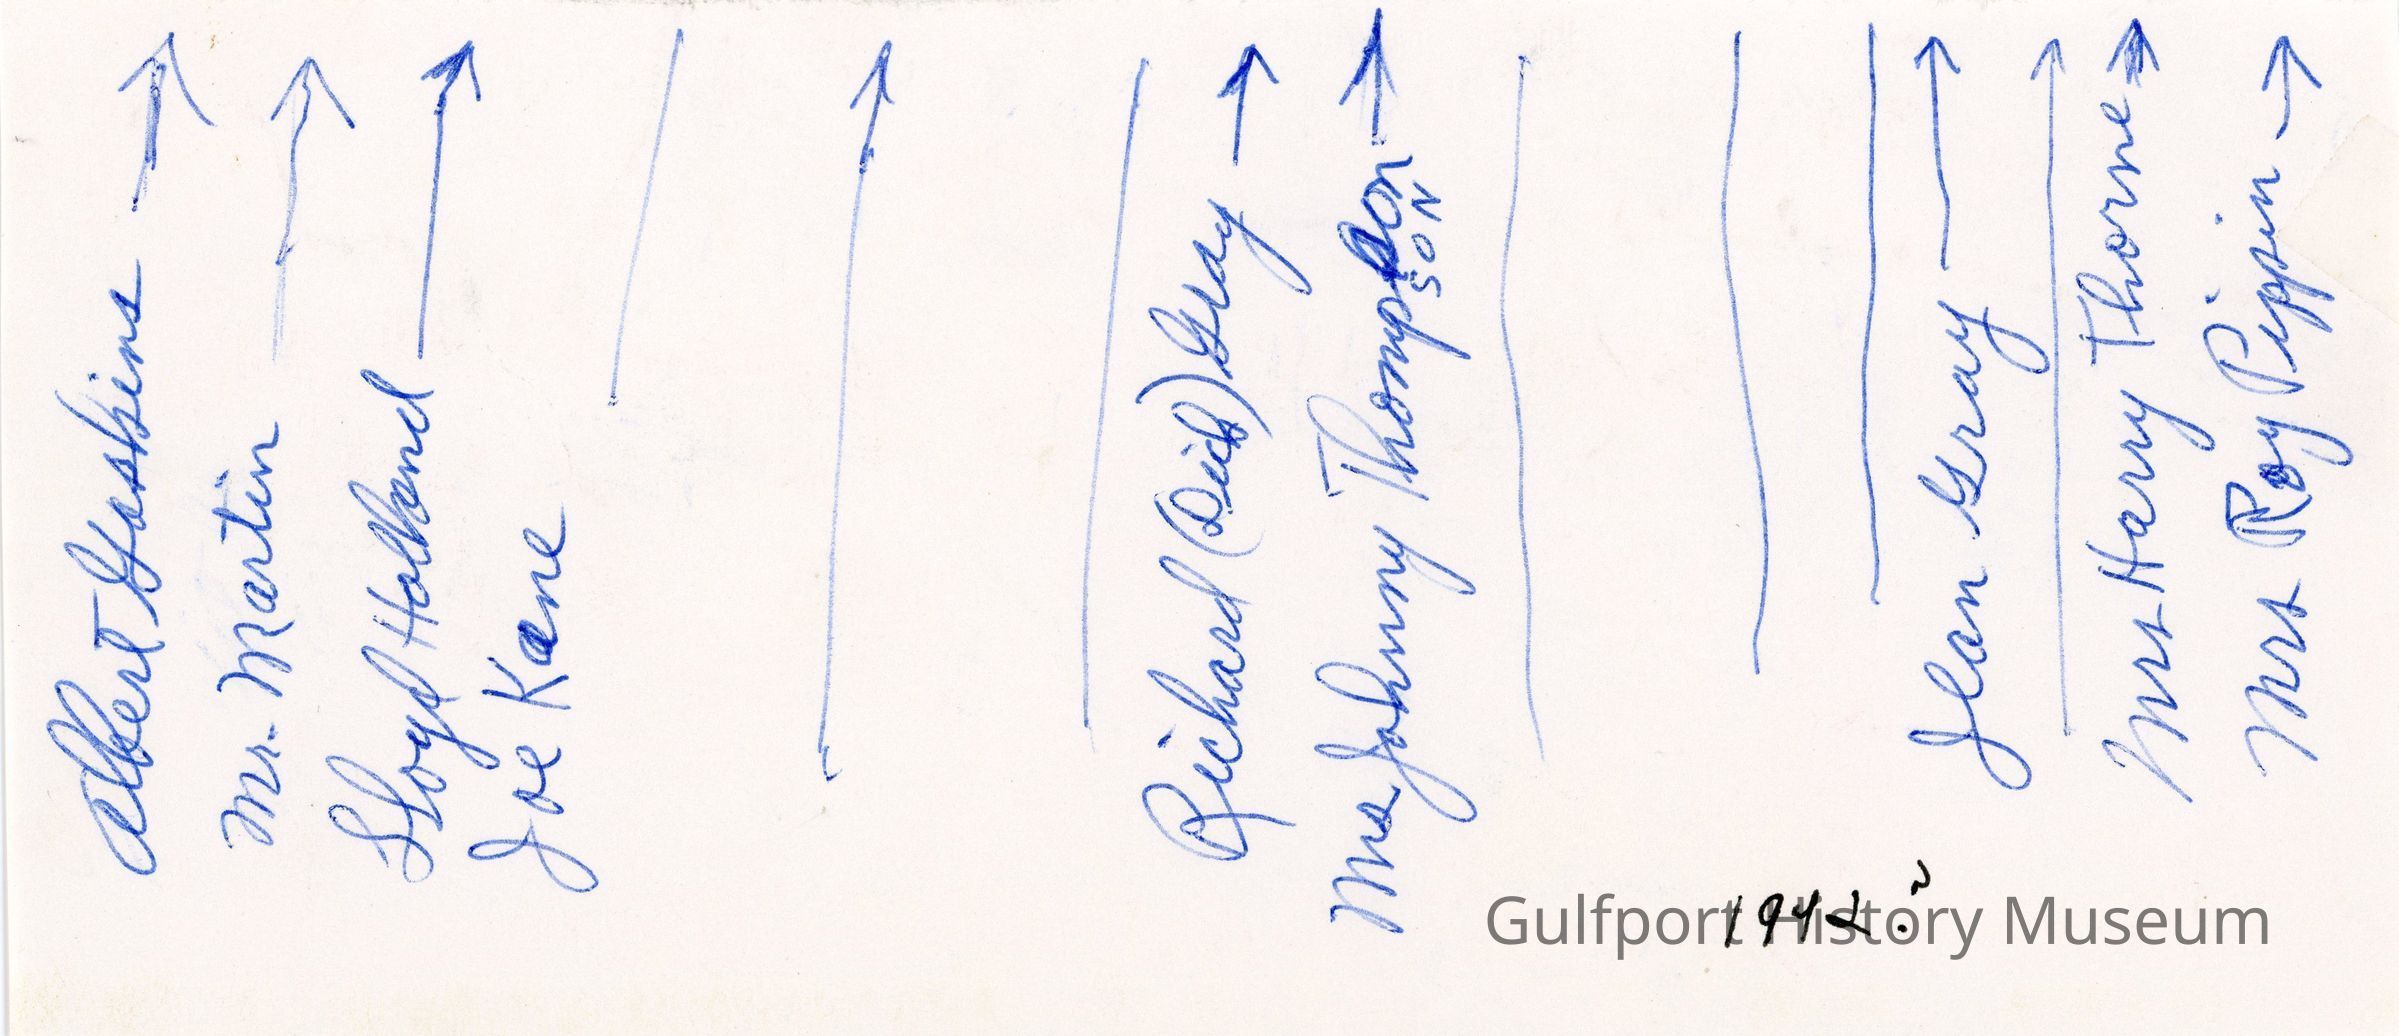 Albert Gaskins
Mr. Martin
Lloyd Holland
Joe Kane
Richard (Dick) Gray
Mrs Johnny Thompson
SON
Jean Gray
Mrs Harry Thorne
Mrs Roy Pippin
1942?
Gulfport History Museum